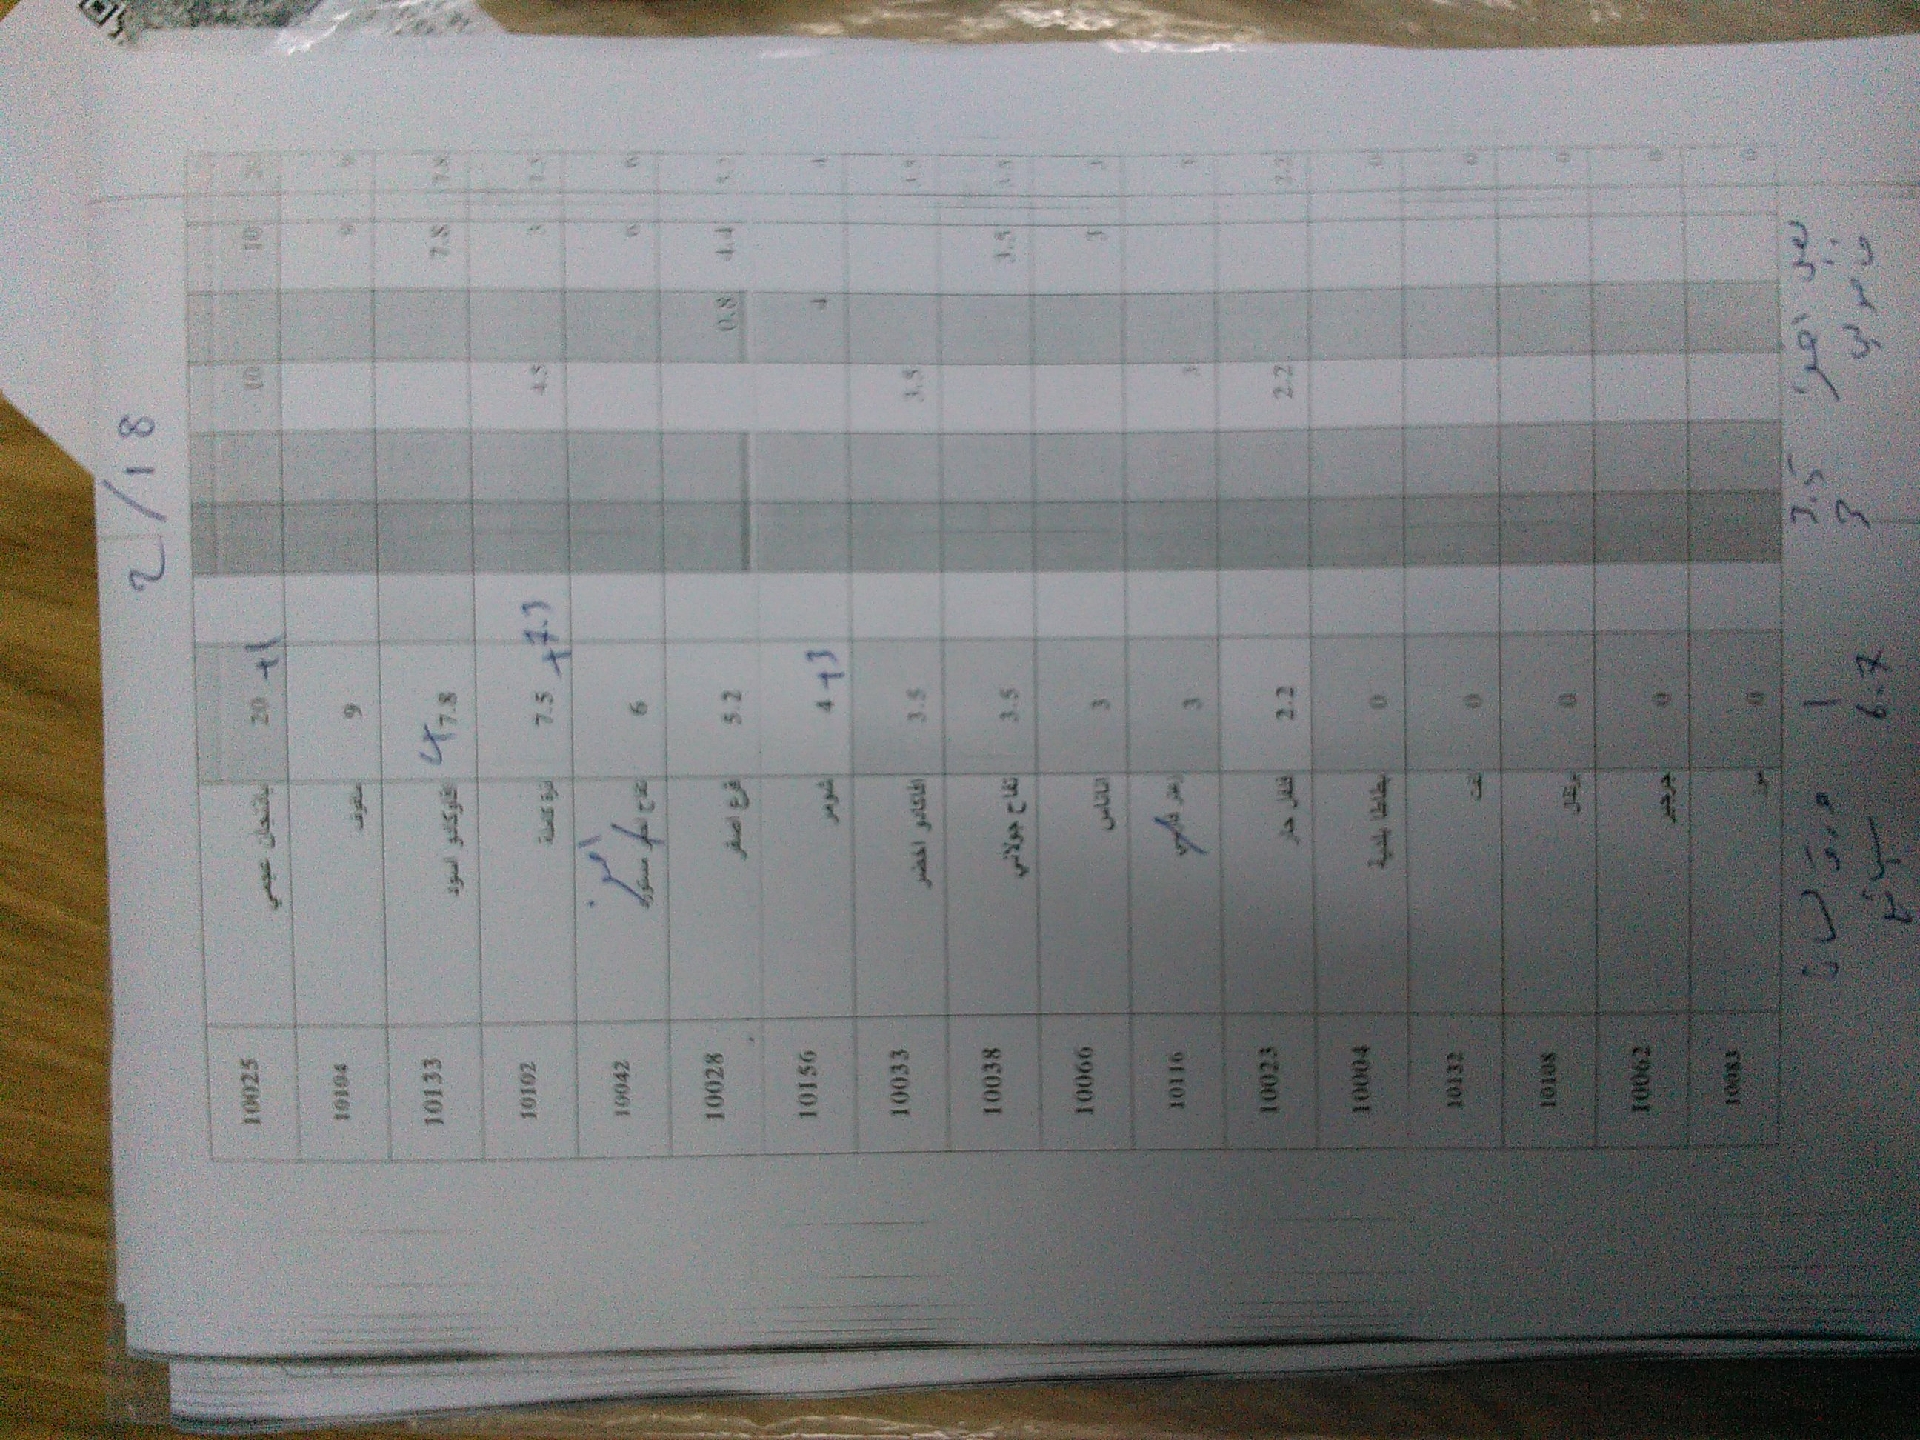 2/18
10025 باذنجان عجمي 20 +1 10 10 20
10104 ملفوف 9 9 9
10133 افوكادو اسود 7.8 7.8 7.8
10102 ذرة كعلة 7.5 +7.3 4.5 3 7.5
10042 تفاح مستورد 6 6 6
10028 قرع اصفر 5.2 0.8 4.4 5.2
10156 شومر 4 +3 4 4
10033 افكادو اخضر 3.5 3.5 3.5
10038 تفاح جولاني 3.5 3.5 3.5
10066 اناناس 3 3 3
10116 3 3 3
10023 فلفل حار 2.2 2.2 2.2
10004 بطاطا بلدية 0 0
10132 لفت 0 0
10108 برتقال 0 0
10062 جرجير 0 0
10083 0 0
1 3.5
سبانخ 6.7 3